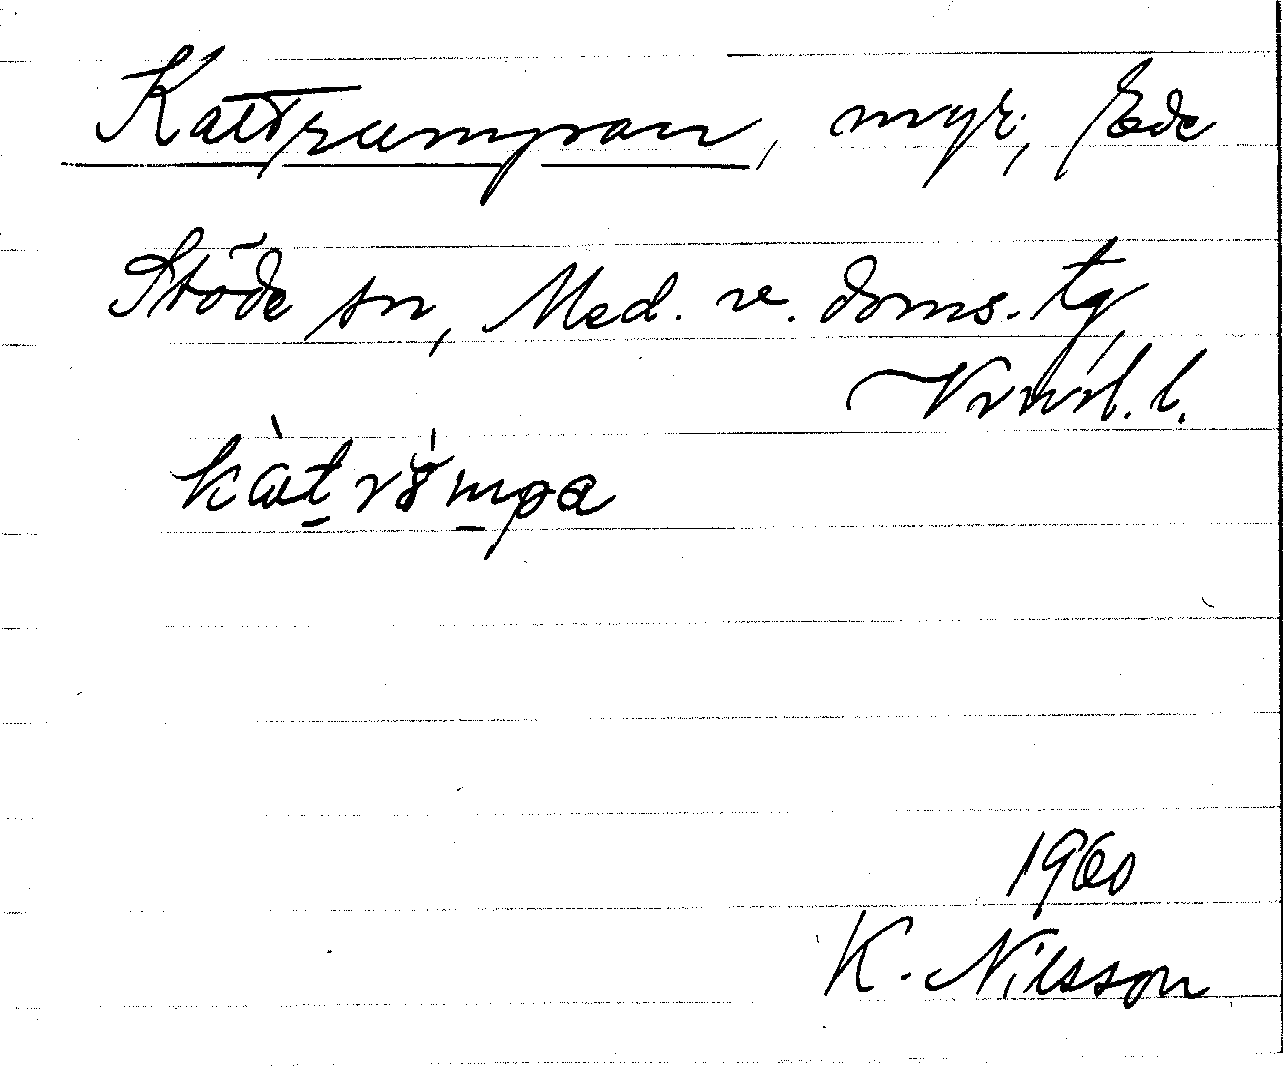 Kattrumpan, myr, Ede
Stöde sn, Med. v. doms. tg
Vrnrl. l.
kàt̠rúm̠pa
1960
K. Nilsson